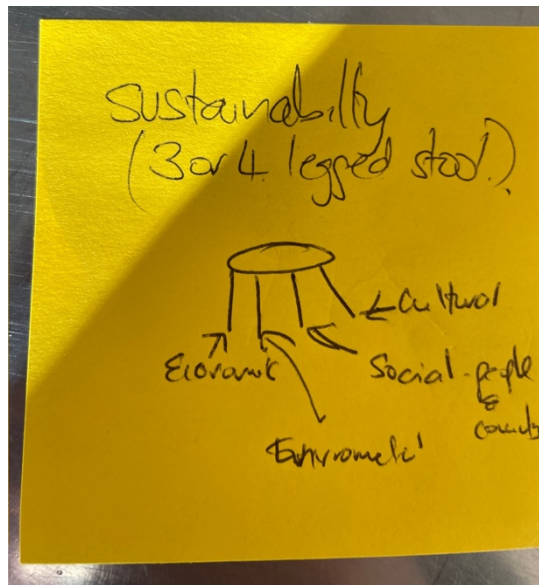 sustainabilty
(3 or 4 legged stool)
← Cultural
Economic
Social - people
&
Enviromett'